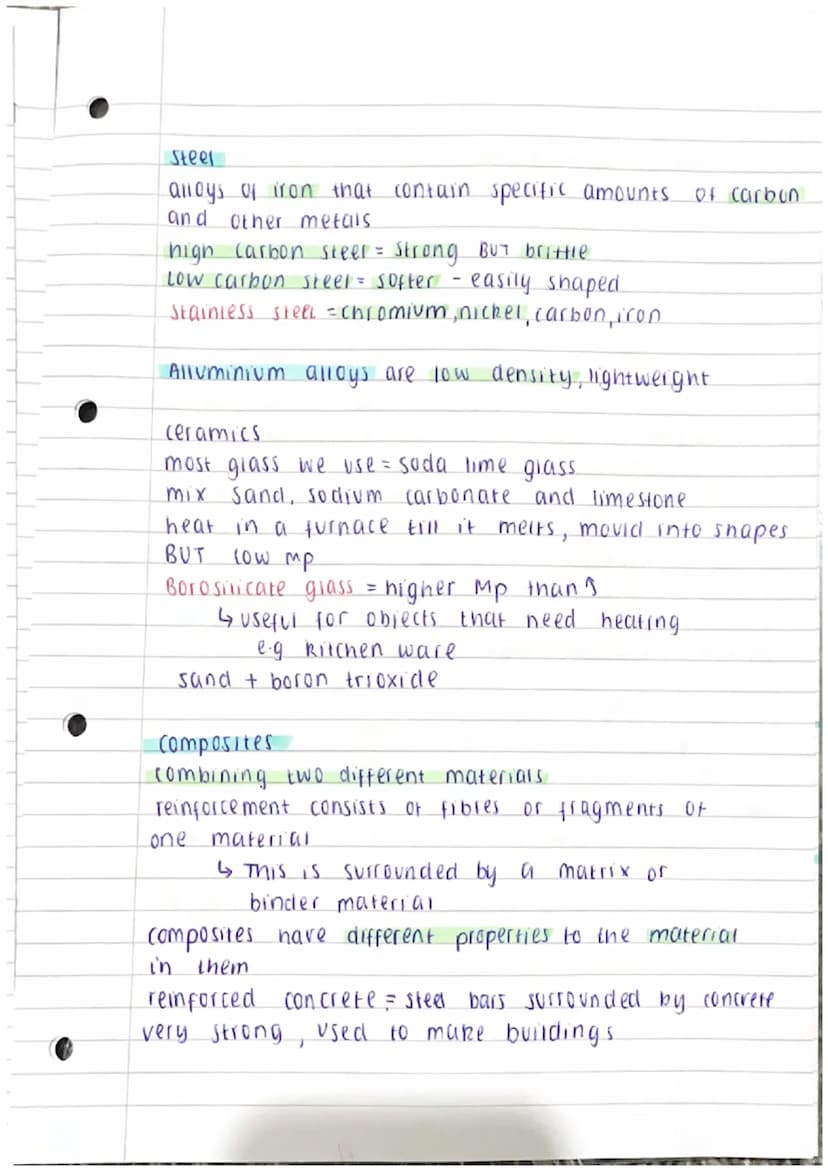 Steel
alloys of iron that contain specific amounts of carbon
and other metals
high carbon steel = strong BUT brittle
Low carbon steel = softer - easily shaped
Stainless steel = chromium, nickel, carbon, iron
Alluminium alloys are low density, lightweight
ceramics
most glass we use = soda lime glass
mix sand, sodium carbonate and limestone
heat in a furnace till it melts, mould into shapes
BUT low mp
Borosilicate glass = higher Mp than ↑
↳ useful for objects that need heating
e.g kitchen ware
sand + boron trioxide
composites
combining two different materials
reinforcement consists of fibres or fragments of
one material
↳ This is surrounded by a matrix or
binder material
composites have different properties to the material
in them
reinforced concrete = steel bars surrounded by concrete
very strong, used to make buildings